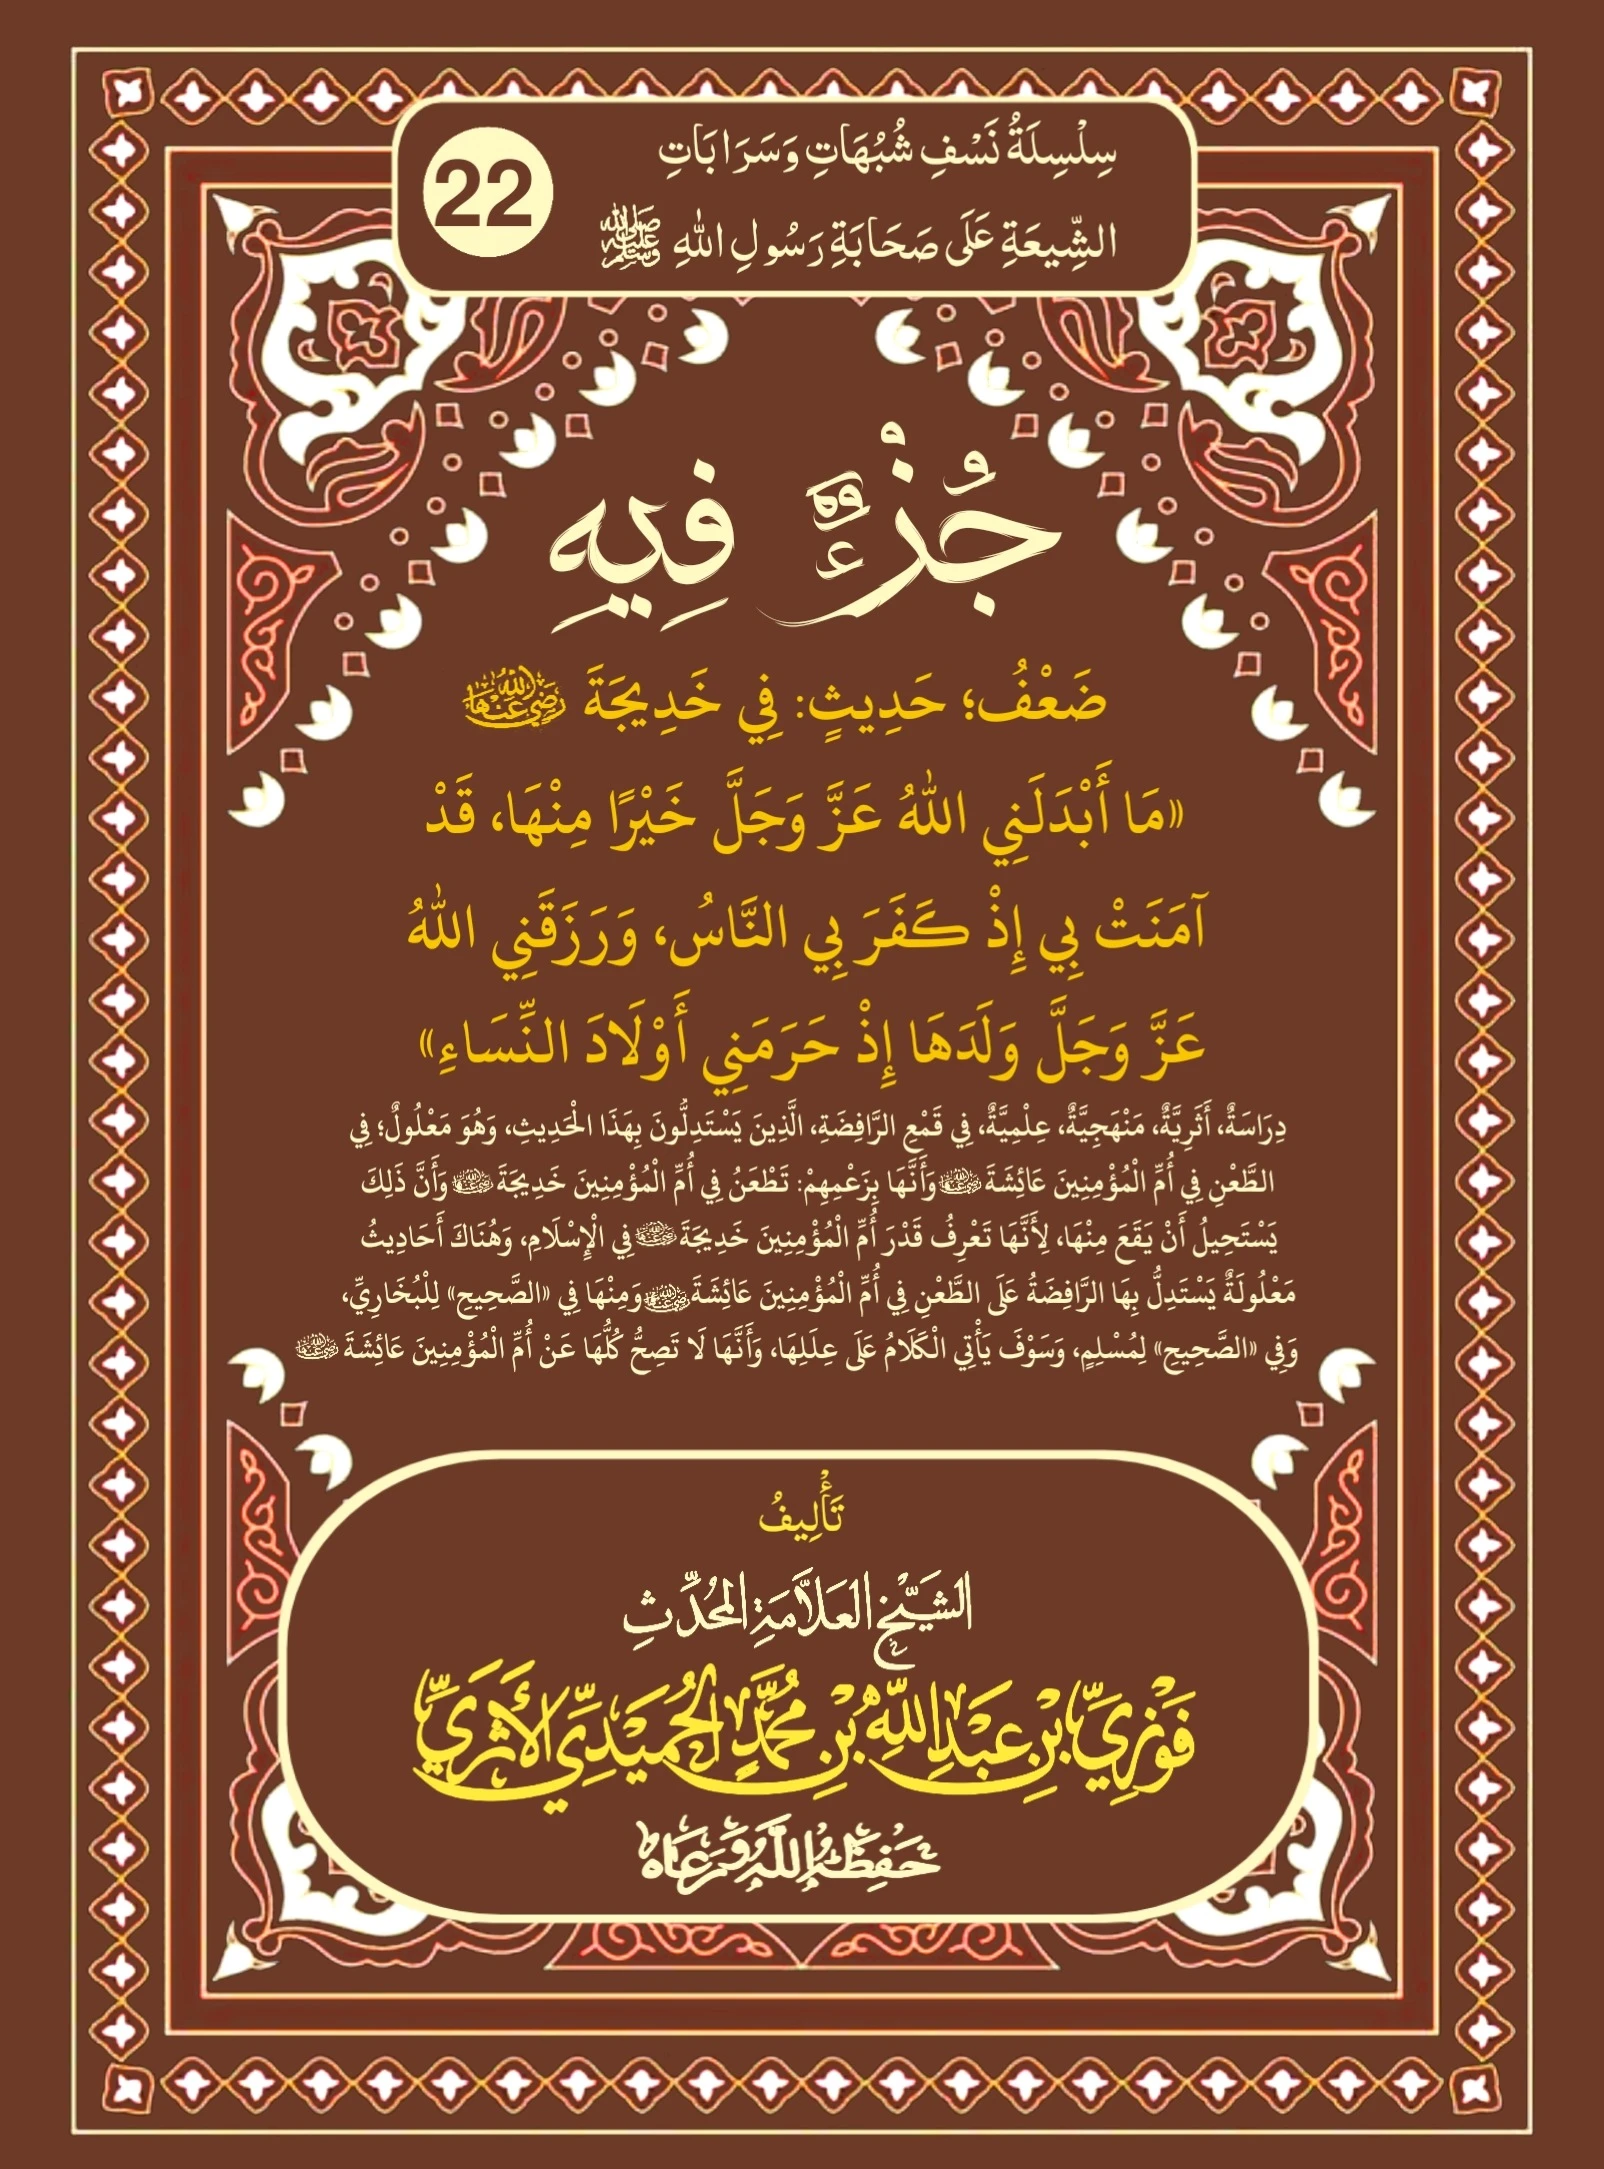 سِلْسِلَةُ نَسْفِ شُبُهَاتِ وَسَرَابَاتِ
الشِّيعَةِ عَلَى صَحَابَةِ رَسُولِ اللهِ ﷺ
22
جُزْءٌ فِيهِ
ضَعْفُ؛ حَدِيثٍ: فِي خَدِيجَةَ رَضِيَ اللهُ عَنْهَا
«مَا أَبْدَلَنِي اللهُ عَزَّ وَجَلَّ خَيْرًا مِنْهَا، قَدْ
آمَنَتْ بِي إِذْ كَفَرَ بِي النَّاسُ، وَرَزَقَنِي اللهُ
عَزَّ وَجَلَّ وَلَدَهَا إِذْ حَرَمَنِي أَوْلَادَ النِّسَاءِ»
دِرَاسَةٌ، أَثَرِيَّةٌ، مَنْهَجِيَّةٌ، عِلْمِيَّةٌ، فِي قَمْعِ الرَّافِضَةِ، الَّذِينَ يَسْتَدِلُّونَ بِهَذَا الْحَدِيثِ، وَهُوَ مَعْلُولٌ؛ فِي
الطَّعْنِ فِي أُمِّ الْمُؤْمِنِينَ عَائِشَةَ رَضِيَ اللهُ عَنْهَا وَأَنَّهَا بِزَعْمِهِمْ: تَطْعَنُ فِي أُمِّ الْمُؤْمِنِينَ خَدِيجَةَ رَضِيَ اللهُ عَنْهَا وَأَنَّ ذَلِكَ
يَسْتَحِيلُ أَنْ يَقَعَ مِنْهَا، لِأَنَّهَا تَعْرِفُ قَدْرَ أُمِّ الْمُؤْمِنِينَ خَدِيجَةَ رَضِيَ اللهُ عَنْهَا فِي الْإِسْلَامِ، وَهُنَاكَ أَحَادِيثُ
مَعْلُولَةٌ يَسْتَدِلُّ بِهَا الرَّافِضَةُ عَلَى الطَّعْنِ فِي أُمِّ الْمُؤْمِنِينَ عَائِشَةَ رَضِيَ اللهُ عَنْهَا وَمِنْهَا فِي «الصَّحِيحِ» لِلْبُخَارِيِّ،
وَفِي «الصَّحِيحِ» لِمُسْلِمٍ، وَسَوْفَ يَأْتِي الْكَلَامُ عَلَى عِلَلِهَا، وَأَنَّهَا لَا تَصِحُّ كُلُّهَا عَنْ أُمِّ الْمُؤْمِنِينَ عَائِشَةَ رَضِيَ اللهُ عَنْهَا
تَأْلِيفُ
الشَّيْخِ العَلَّامَةِ المُحَدِّثِ
فَوْزِيِّ بْنِ عَبْدِ اللَّهِ بْنِ مُحَمَّدٍ الحُمَيْدِيِّ الأَثَرِيِّ
حَفِظَهُ اللَّهُ وَرَعَاهُ